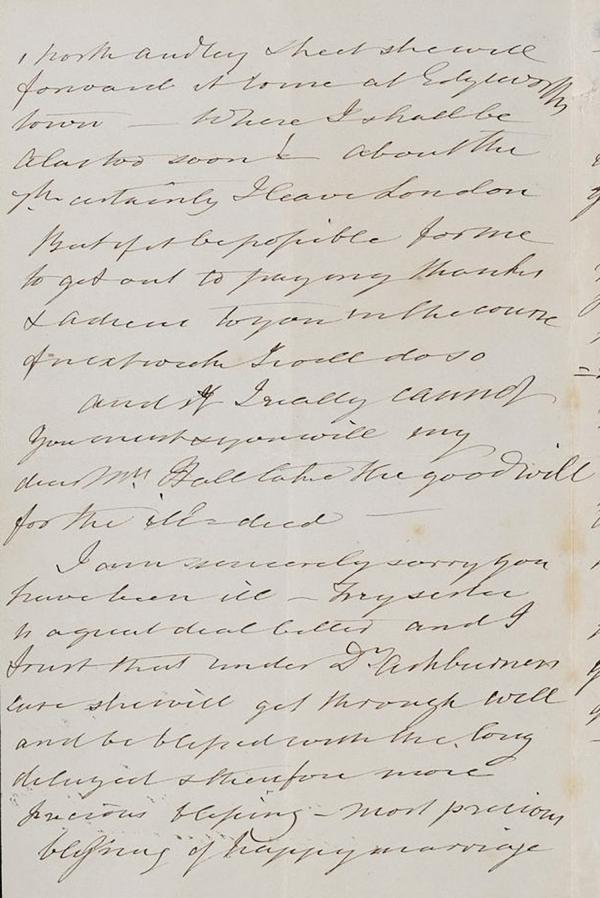 1 North Audley Street she will
forward it to me at Edgeworths
town — Where I shall be
alas too soon! — About the
7th certainly I leave London
But if it be possible for me
to get out to pay my thanks
& adieux to you in the course
of next week I will do so
and if I really cannot
you must & you will my
dear Mrs Hall take the good will
for the ill = deed —
I am sincerely sorry you
have been ill — My sister
is a great deal better and I
trust that under Dr Ashburners
care she will get through well
and be blessed with the long
delayed & therefore more
precious blessing — most precious
blessing of happy marriage